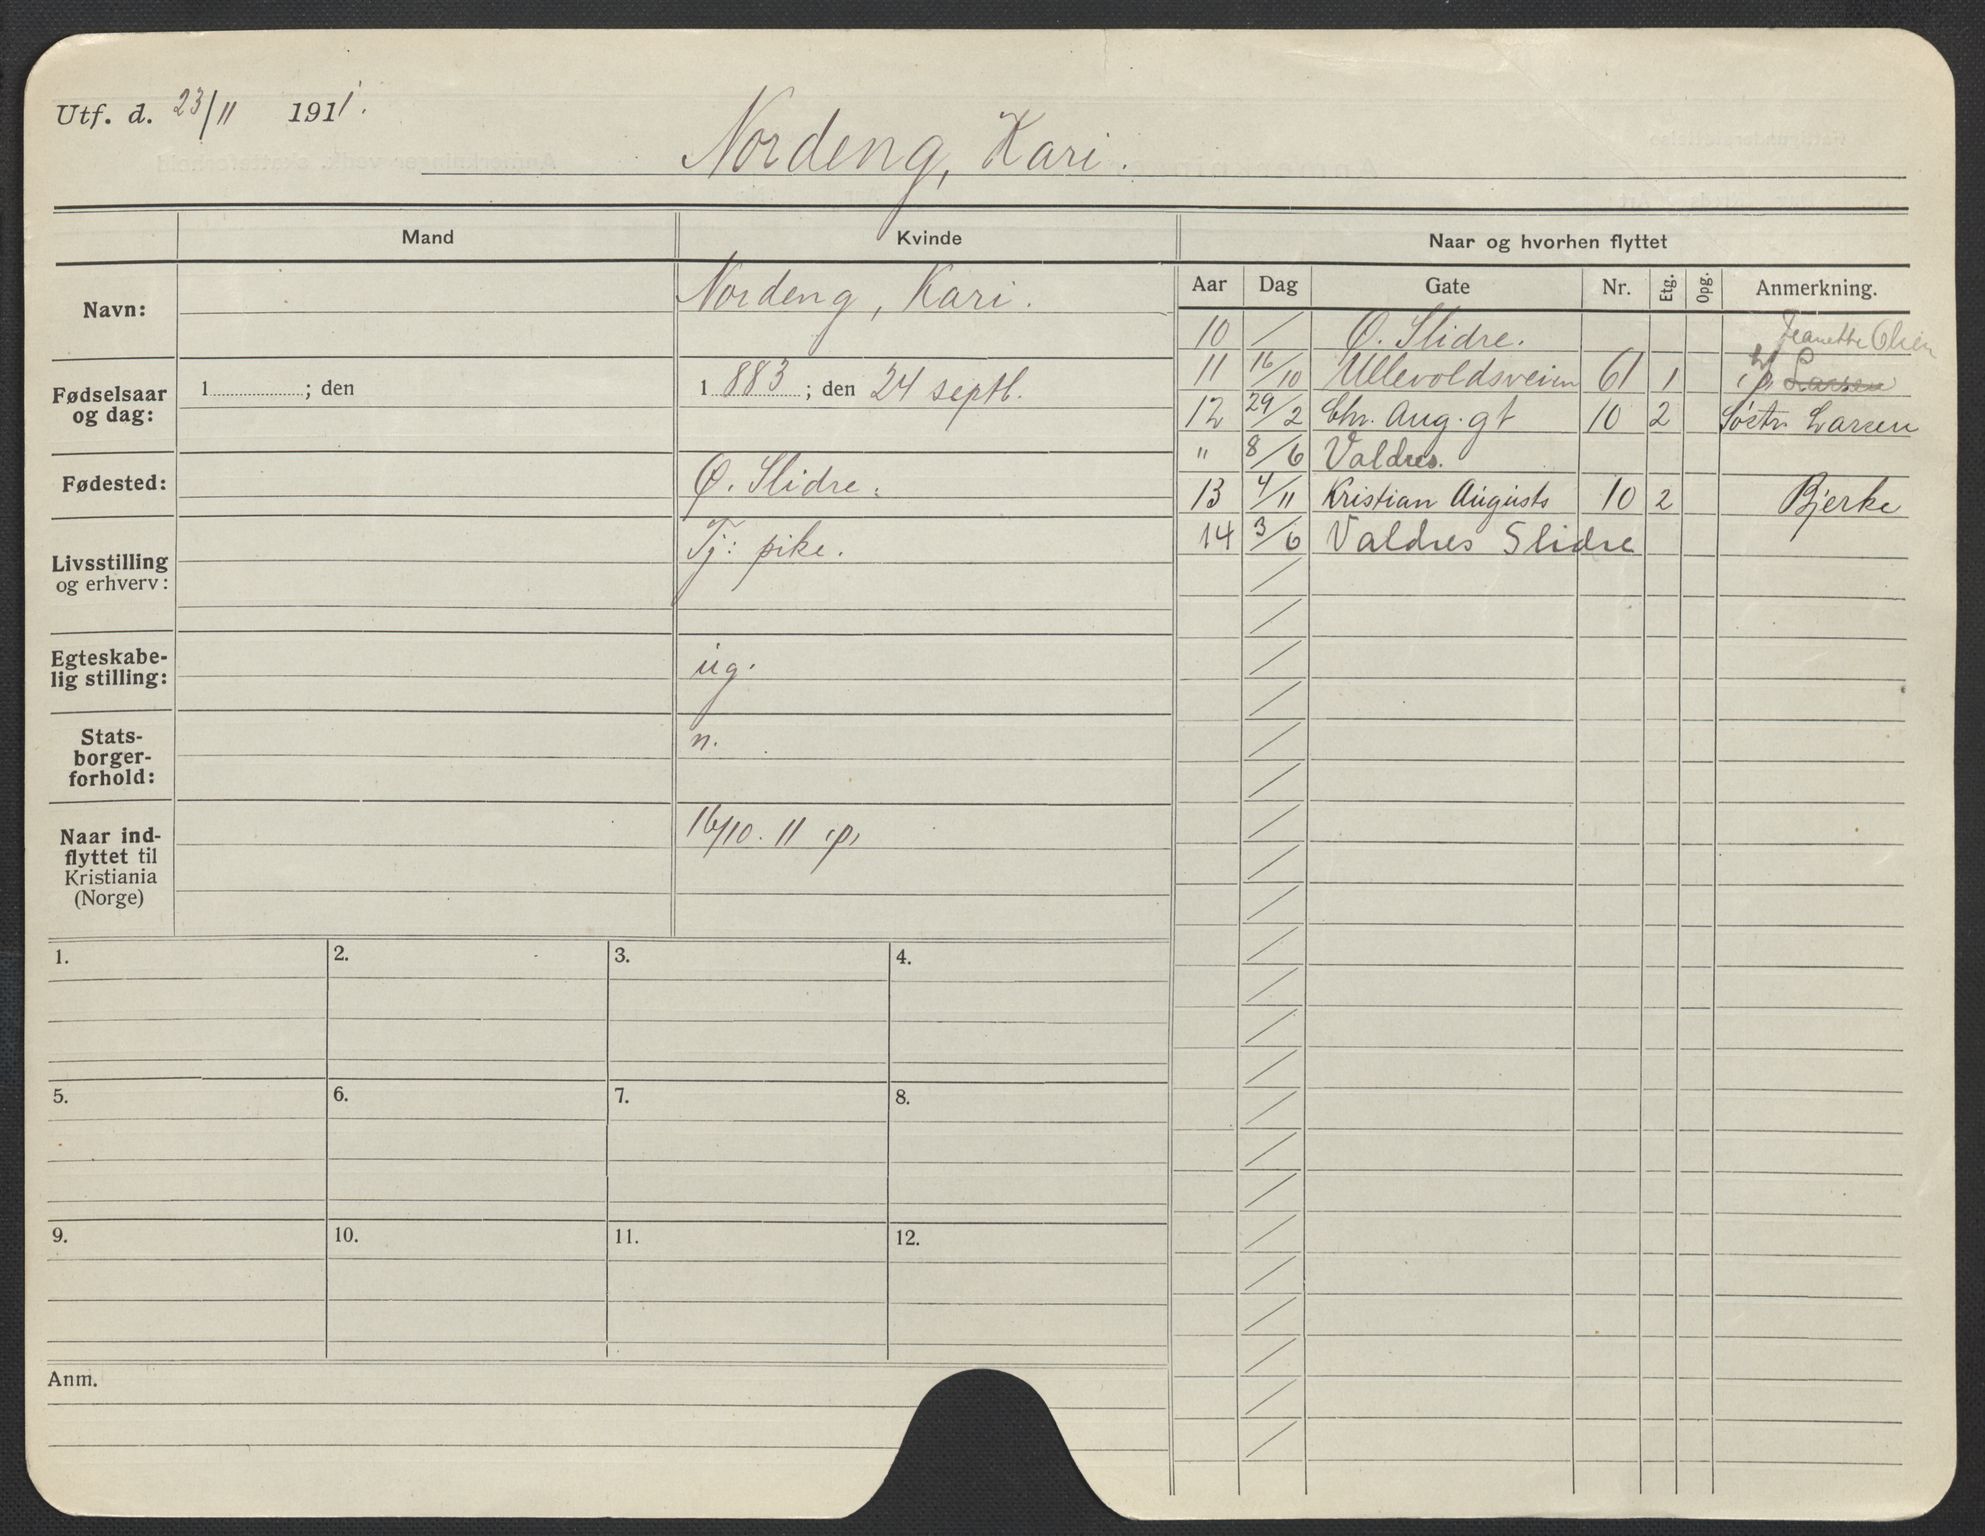 Utf. d. 23/11 1911.
Nordeng, Kari.
Mand Kvinde Naar og hvorhen flyttet
Aar Dag Gate Nr. Etg. Opg. Anmerkning.
Navn: Nordeng, Kari.
Fødselsaar og dag: 1 ; den 1 883 ; den 24 septb.
Fødested: Ø. Slidre.
Livsstilling og erhverv: Tj: pike.
Egteskabelig stilling: ug.
Statsborgerforhold: n.
Naar indflyttet til Kristiania (Norge) 16/10. 11
10 / Ø. Slidre. Jeanette Olsen
11 16/10 Ullevoldsveien 61 1 Larsen
12 29/2 Chr. Aug. gt 10 2 Søstr. Larsen
" 8/6 Valdres.
13 4/11 Kristian Augusts 10 2 Bjerke
14 3/6 Valdres Slidre
1. 2. 3. 4.
5. 6. 7. 8.
9. 10. 11. 12.
Anm.